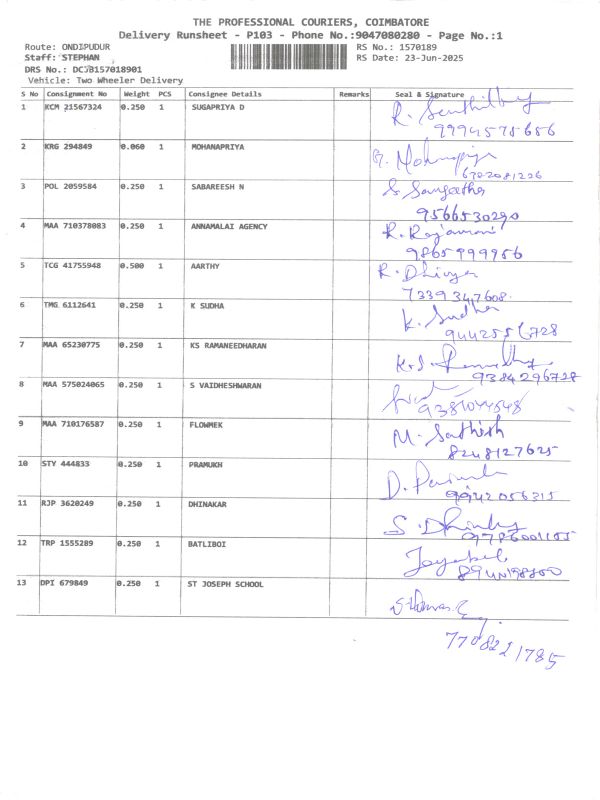 THE PROFESSIONAL COURIERS, COIMBATORE
Delivery Runsheet - P103 - Phone No.:9047080280 - Page No.:1
Route: ONDIPUDUR RS No.: 1570189
Staff: STEPHAN RS Date: 23-Jun-2025
DRS No.: DCJB157018901
Vehicle: Two Wheeler Delivery
S No Consignment No Weight PCS Consignee Details Remarks Seal & Signature
1 KCM 21567324 0.250 1 SUGAPRIYA D R.
2 KRG 294849 0.060 1 MOHANAPRIYA G. Mohanapriya
3 POL 2059584 0.250 1 SABAREESH N S. Sangeetha
9566530290
4 MAA 710378083 0.250 1 ANNAMALAI AGENCY R. Rajamani
9865999956
5 TCG 41755948 0.500 1 AARTHY R. Dhivya
7339347608
6 TMG 6112641 0.250 1 K SUDHA K. Sudha
7 MAA 65230775 0.250 1 KS RAMANEEDHARAN K.S.
9384296728
8 MAA 575024065 0.250 1 S VAIDHESHWARAN
9 MAA 710176587 0.250 1 FLOWMEK M. Sathish
8248127625
10 STY 444833 0.250 1 PRAMUKH D.
9942056315
11 RJP 3620249 0.250 1 DHINAKAR S.
12 TRP 1555289 0.250 1 BATLIBOI
13 DPI 679849 0.250 1 ST JOSEPH SCHOOL
7708221785